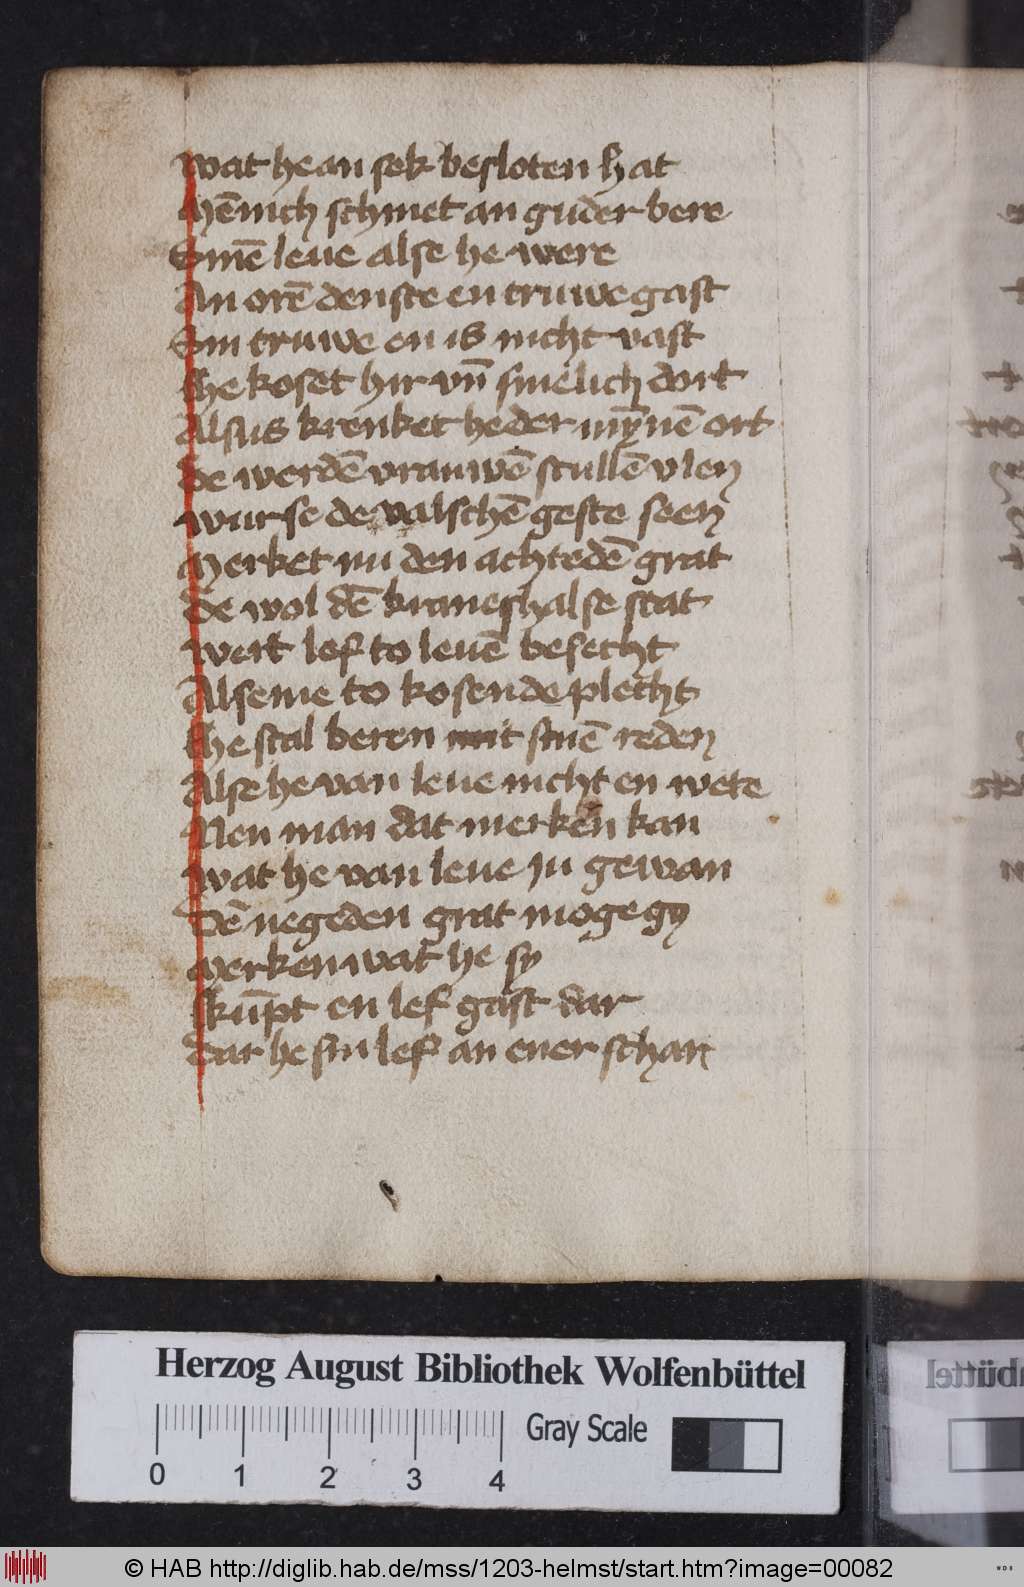 wat he an sek besloten hat
Mēnich schinet an guder bere
Sinē leue alse he were
An orē denste en truwe gast
Sin truwe en is nicht vast
he koset hir vn̄ smēlich dort
Alsus krenket he der mȳnē ort
de werdē vrauwē scullē vlen
wur se de valschē geste seen
Merket nu den achtedē grat
de wol dē kraneshalse stat
wert lef to leuē besecht
Alse me to kosende plecht
he scal beren mit sinē reden
Alse he van leue nicht en wete
Nen man dat merken kan
wat he van leue ju gewan
Dē negeden grat moge gy
merken wat he sy
kūpt en lef gast dar
dar he sin lef an ener schar
Herzog August Bibliothek Wolfenbüttel
Gray Scale
0 1 2 3 4
© HAB http://diglib.hab.de/mss/1203-helmst/start.htm?image=00082